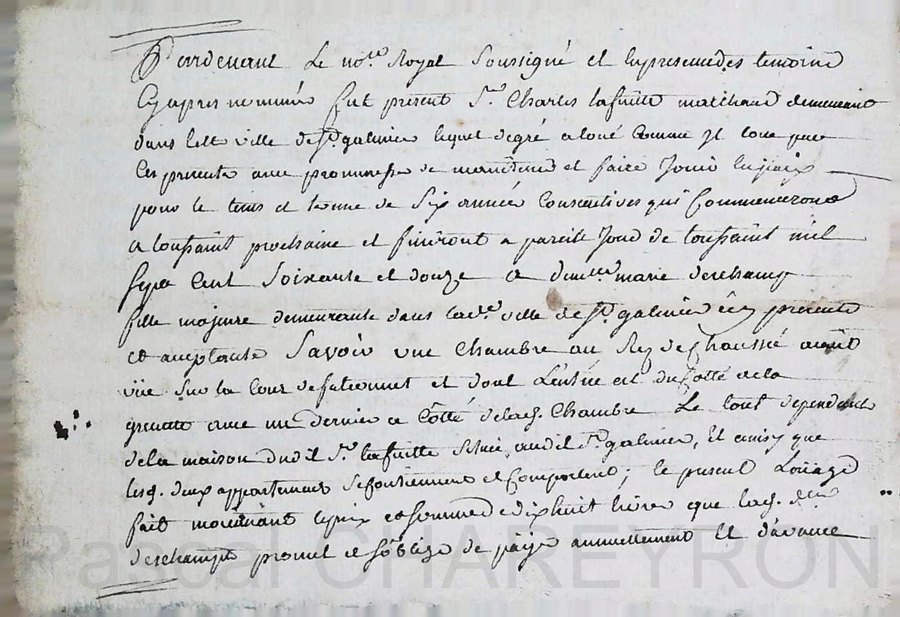 Pardevant Le no.re Royal Soussigné et En presence des temoins
Cy apres nommés fut present S.r Charles lafuitte marchand demeurant
dans lad.e ville de S.t galmier lequel de gré a loué Comme Jl loue par
Ces presente avec promesse de maintenir et faire Jouir
pour le tems et terme de Six année Consecutives qui Commenceront
a toussaint prochaine et finiront a pareille Jour de toussaint mil
sept Cent Soixante et douze a dem.lle marie deschamps
fille majeure demeurante dans lad.e ville de S.t galmier icy presente
et acceptante Savoir une Chambre au Rez de Chaussé
vüe Sur la Cour et dont L'entrée est du Cotté de la
avec un dernier a Côtté de lad. Chambre Le tout dependant
de la maison dudit S.r lafuitte Scituée audit S.t galmier, Et ainsy que
lesd. deux appartements Se Contiennent et Comportent; le present Louage
fait moienant le prix et somme de dixhuit livres que lad. d.lle
deschamps promet et s'oblige de payer annuellement Et d'avance
Pascal CHAREYRON